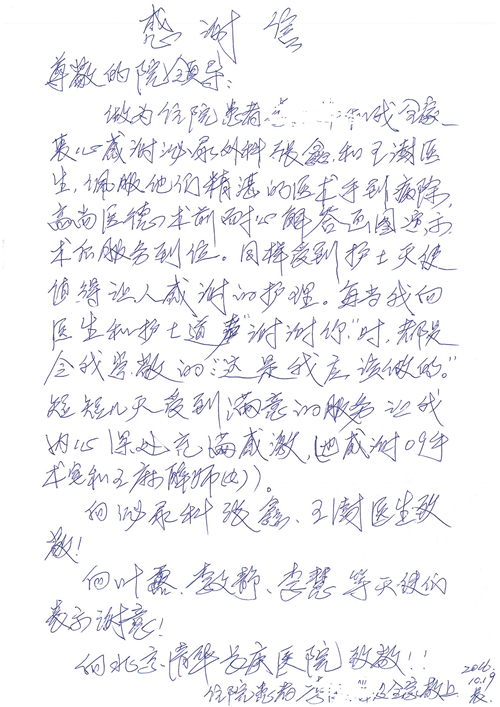 感谢信
尊敬的院领导:
做为住院患者 和我全家
衷心感谢泌尿外科张鑫和王澍医
生,佩服他们精湛的医术手到病除,
高尚医德,术前耐心解答画图演示
术后服务到位。同样受到护士天使
值得让人感谢的护理。每当我向
医生和护士道声"谢谢你"时,都是
令我尊敬的"这是我应该做的。"
短短几天受到满意的服务让我
内心深处充满感激,也感谢09手
术室和王麻醉师(女))。
向泌尿科张鑫、王澍医生致
敬!
向叶露、李文静、李慧等天使们
表示谢意!
向北京清华长庚医院致敬!!
住院患者 及全家敬上
2016.
10.19
晨.